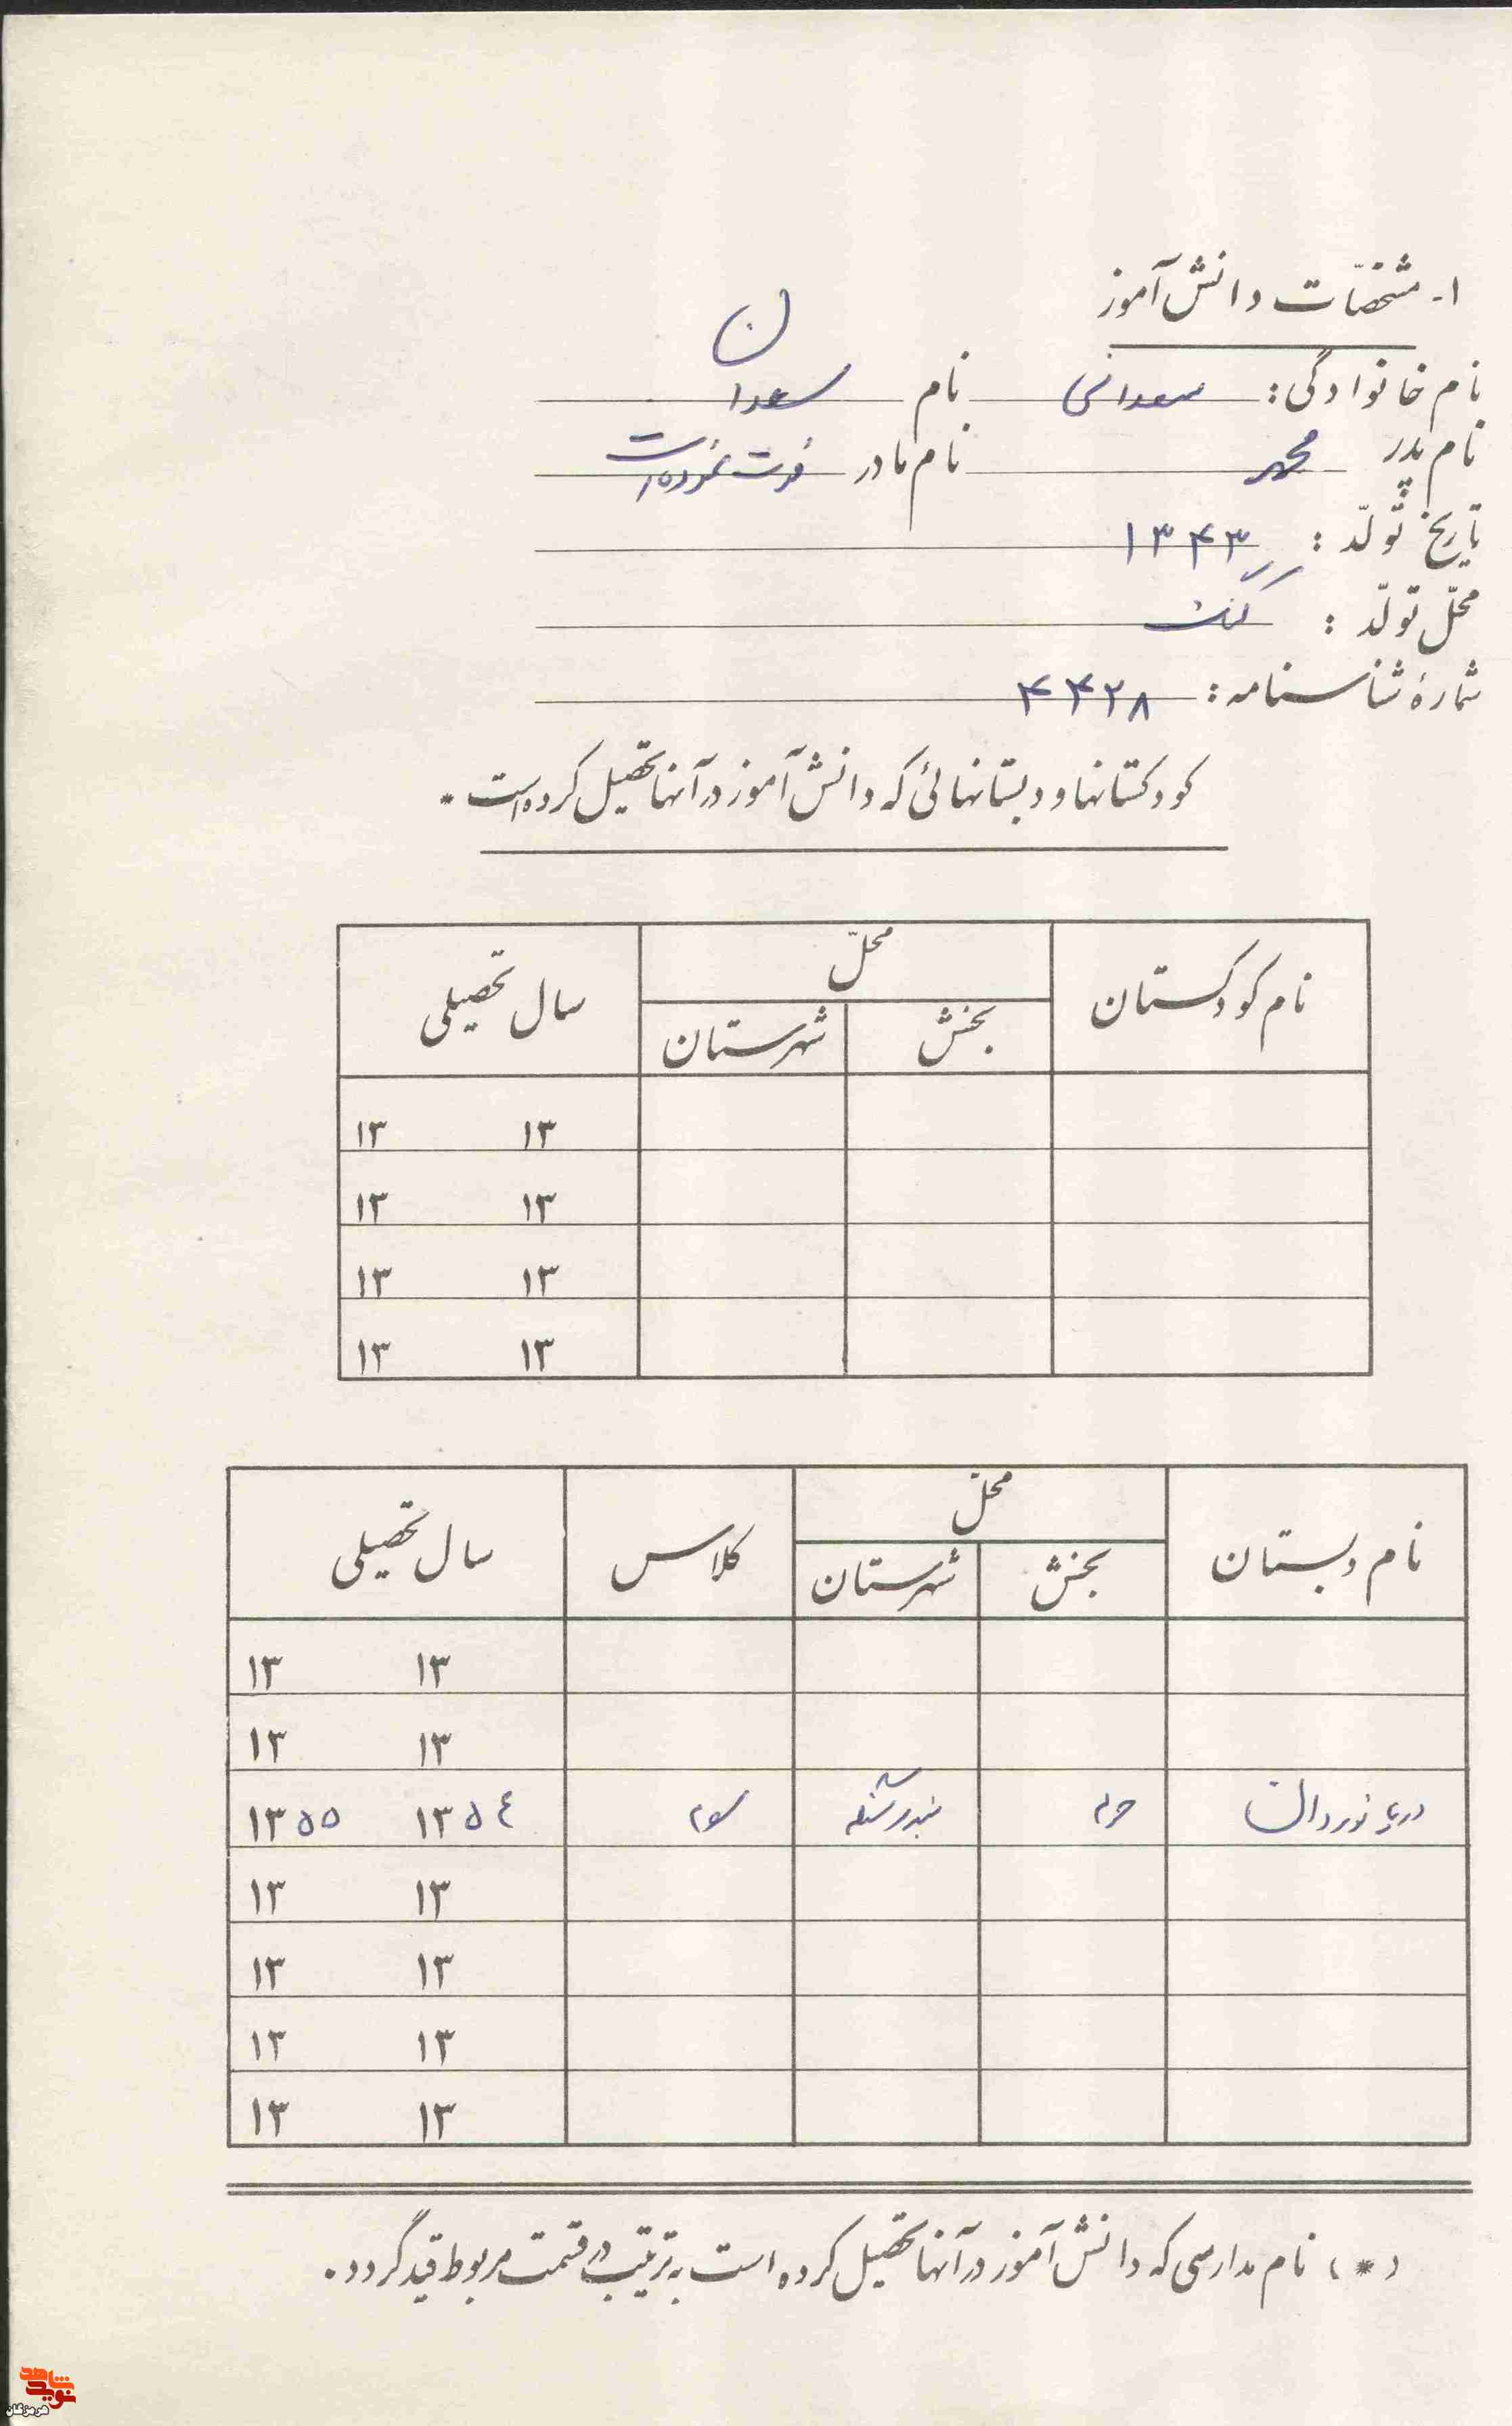 ۱- مشخصّات دانش آموز
نام خانوادگی: سعدانی نام سعدان
نام پدر محمد نام مادر فوت نموده است
تاریخ تولّد: ۱۳۴۳
محلّ تولّد: کنگ
شمارهٔ شناسنامه: ۴۴۲۸
کودکستانها و دبستانهائی که دانش آموز در آنها تحصیل کرده است *
نام کودکستان محلّ سال تحصیلی
بخش شهرستان
۱۳ ۱۳
۱۳ ۱۳
۱۳ ۱۳
۱۳ ۱۳
نام دبستان محلّ کلاس سال تحصیلی
بخش شهرستان
۱۳ ۱۳
۱۳ ۱۳
دریانوردان بندرلنگه سوم ۱۳۵۴ ۱۳۵۵
۱۳ ۱۳
۱۳ ۱۳
۱۳ ۱۳
۱۳ ۱۳
(*) نام مدارسی که دانش آموز در آنها تحصیل کرده است به ترتیب در قسمت مربوط قید گردد.
نوید شاهد
هرمزگان